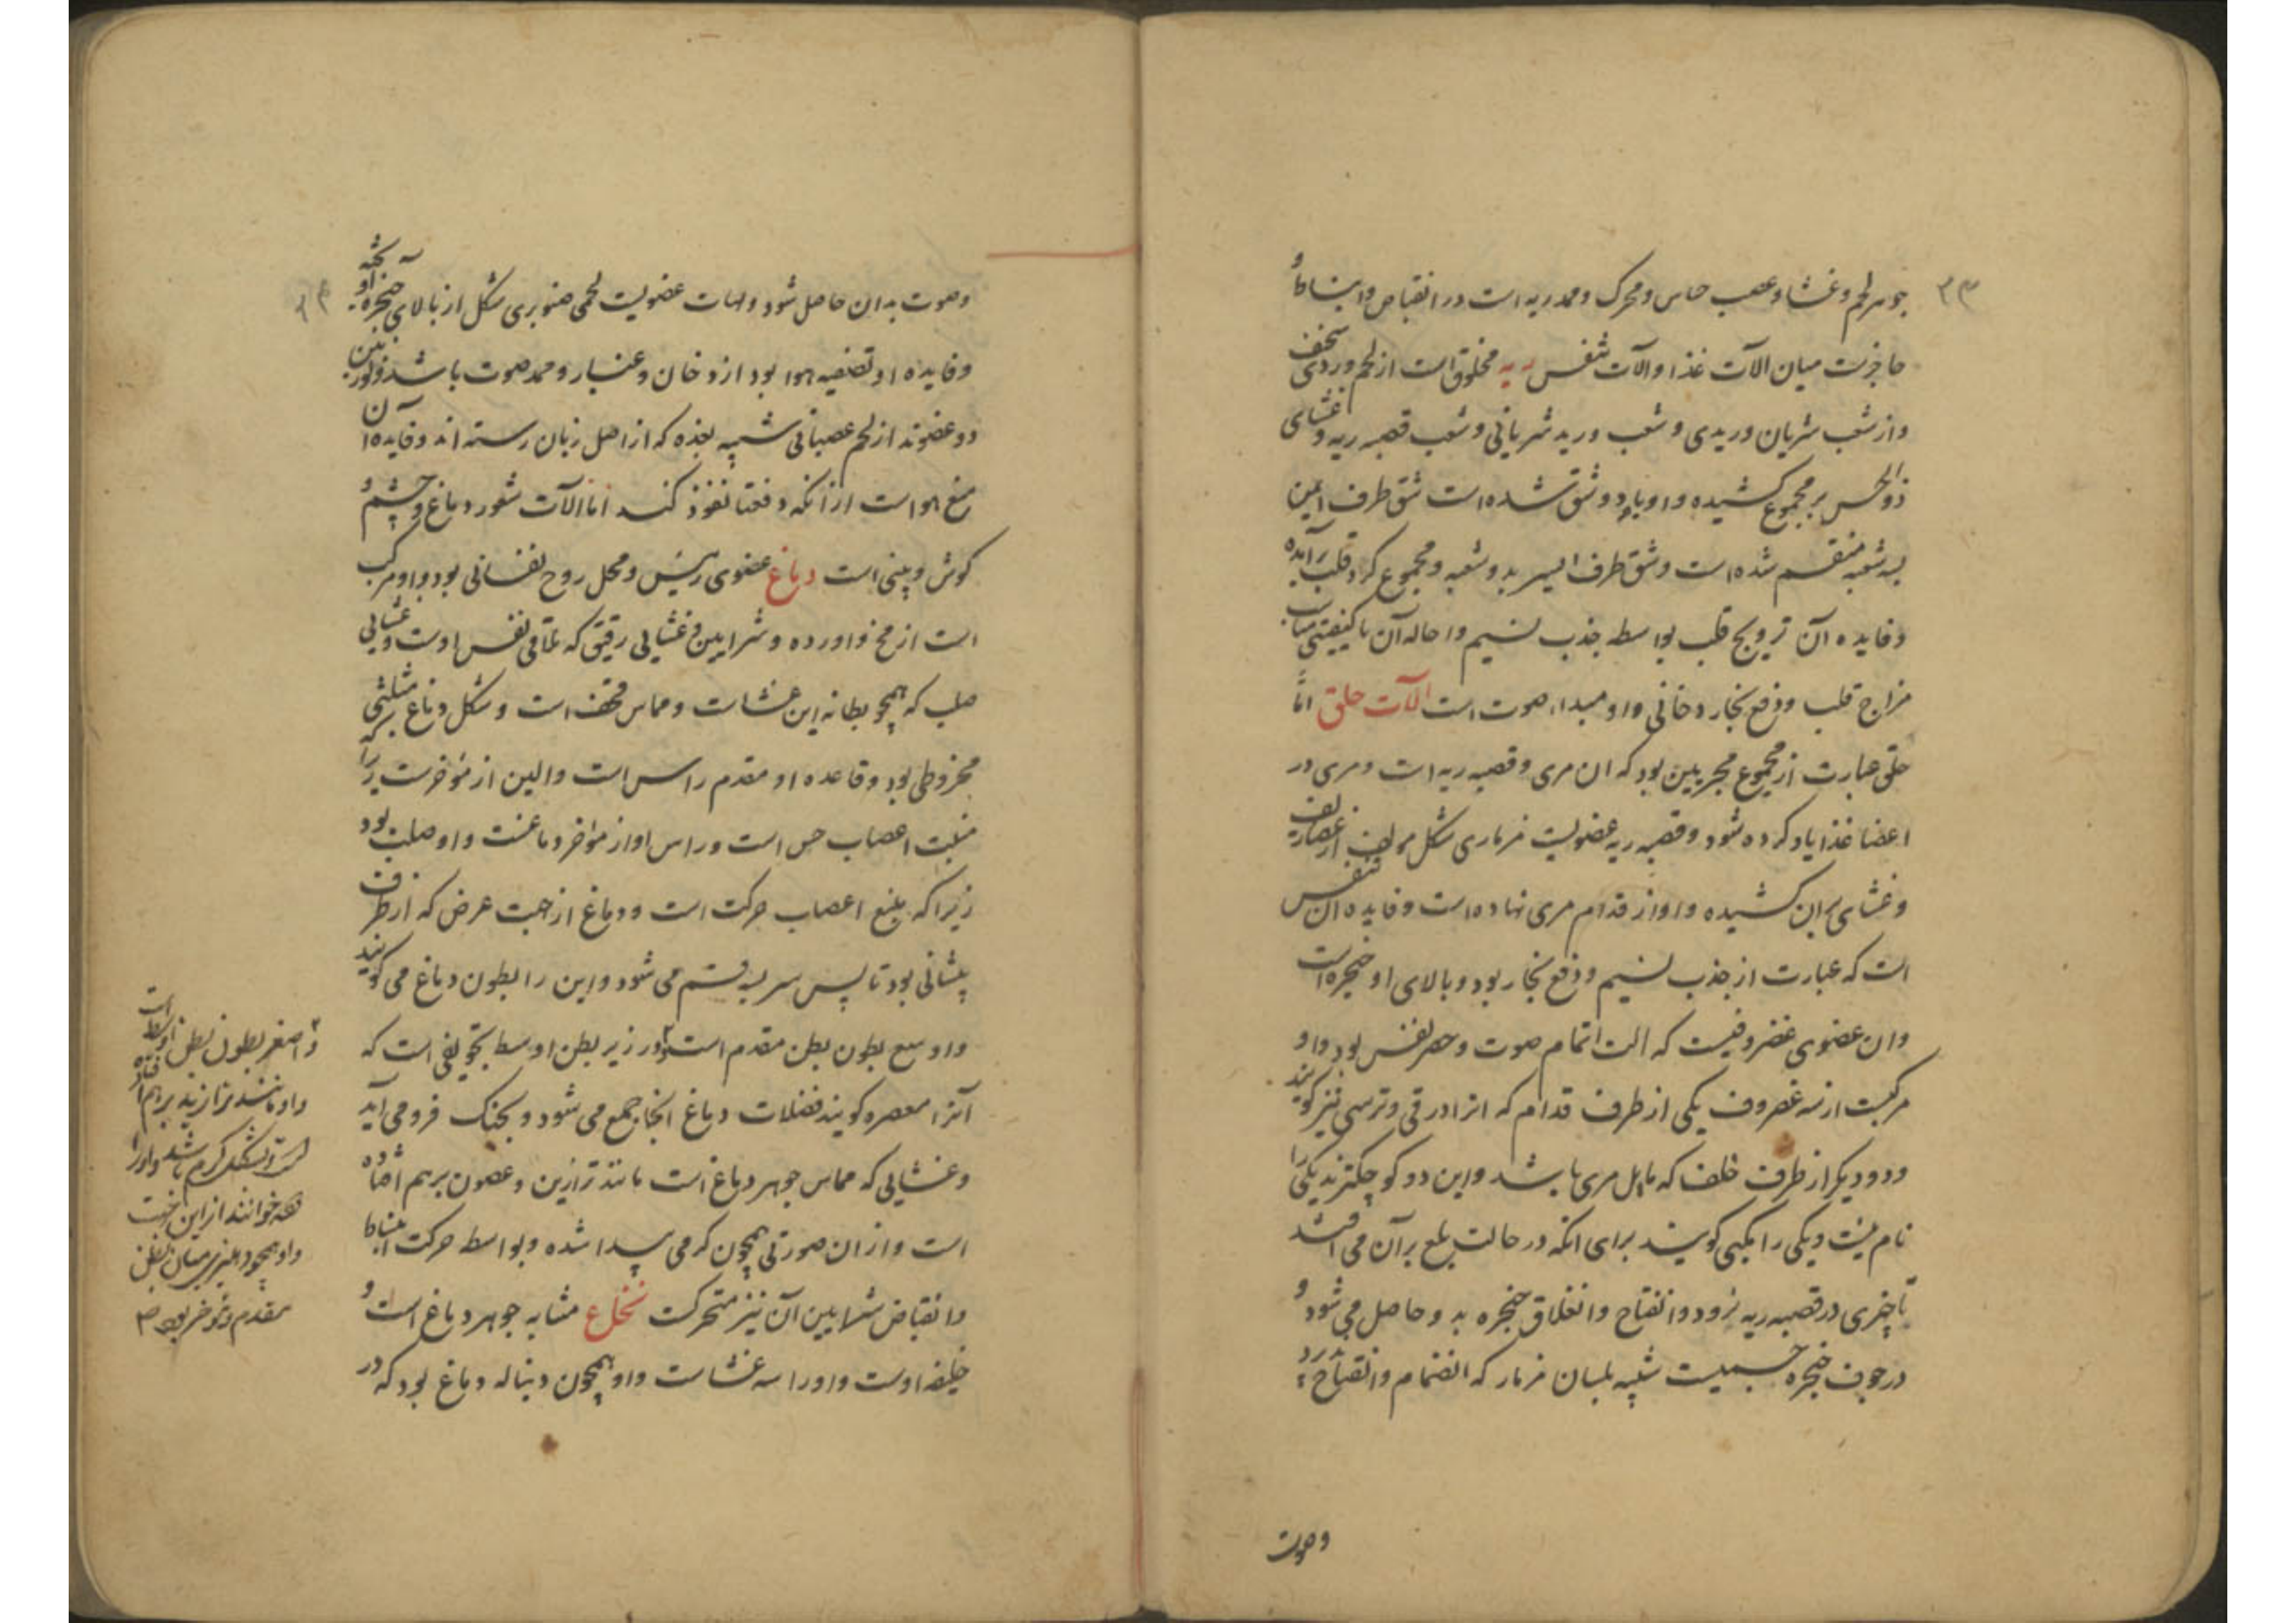 جوهر لحم و غشا و عصب حاس و محرک و ممد ریه است در انقباض و انبساط و
حاجزست میان آلات غذا و آلات تنفس ریه مخلوق است از لحم وردی سخیف
و از شعب شریان وریدی و شعب ورید شریانی و شعب قصبه ریه و غشای
ذوالحس بر مجموع کشیده و او بدو شق شده است شق طرف ایمن
بسه شعبه منقسم شده است و شق طرف ایسر بدو شعبه و مجموع کرد قلب برآمده
و فایده آن ترویح قلب بواسطه جذب نسیم و احاله آن با کیفیتی مناسب
مزاج قلب و دفع بخار دخانی و او مبداء صوت است آلات حلق اما
حلق عبارت از مجموع مجریین بود که ان مری و قصبه ریه است و مری در
اعضا غذا یاد کرده شود و قصبه ریه عضویست مزماری شکل مولف از غضاریف
و غشای بران کشیده و او از قدام مری نهاده است و فایده ان تنفس
است که عبارت از جذب نسیم و دفع بخار بود و بالای او حنجره است
و ان عضوی غضروفیست که الت اتمام صوت و حصر نفس بود و او
مرکبست از سه غضروف یکی از طرف قدام که انرا درقی و ترسی نیز کویند
و دو دیکر از طرف خلف که مایل مری باشد و این دو کوچکترند یکی را
نام نیست و یکی را مکبی کویند برای انکه در حالت بلع بر آن می افتد
تا چیزی در قصبه ریه نرود و انفتاح و انغلاق حنجره بدو حاصل می شود و
در جوف حنجره جسمیست شبیه بلسان مزمار که انضمام و انفتاح پذیرد
وصوت
وصوت بدان حاصل شود و لهات عضویست لحمی صنوبری شکل از بالای حنجره آویخته
و فایده او تصفیه هوا بود از دخان و غبار و ممد صوت باشد و لوزتین
دو عضوند از لحم عصبانی شبیه بغده که از اصل زبان رسته اند و فایده آن
منع هواست از انکه دفعتا نفوذ کند اما آلات شعور دماغ و چشم و
کوش و بینی است دماغ عضوی رئیس و محل روح نفسانی بود و او مرکب
است از مخ و اورده و شرایین و غشایی رقیق که ملاقی نفس اوست و غشایی
صلب که همچو بطانه این غشاست و مماس قحف است و شکل دماغ مثلثی
مخروطی بود و قاعده او مقدم راس است و الین از مؤخرست زیرا که
منبت اعصاب حس است و راس او از مؤاخر دماغست و او صلب بود
زیرا که منبع اعصاب حرکت است و دماغ از جهت عرض که از طرف
پیشانی بود تا پس سر بسه قسم می شود و این را بطون دماغ می کویند
و اوسع بطون بطن مقدم است و در زیر بطن اوسط تجویفی است که
آنرا معصره کویند فضلات دماغ انجا جمع می شود و بحنک فرو می آید
و غشایی که مماس جوهر دماغ است مانند ترازین و غصون برهم افتاده
است و از ان صورتی همچون کرمی پیدا شده و بواسطه حرکت انبساط
و انقباض شرایین آن نیز متحرکست نخاع مشابه جوهر دماغ است و
خلیفه اوست و او را سه غشاست و او همچون دنباله دماغ بود که در
و اصغر بطون بطن اوسط است
و او مانند ترازید برهم افتاده
است و بشکل کرم باشد و او را
دوده خوانند از این جهت
و او همچو دهلیزی میان بطن
مقدم و مؤخر بود صح